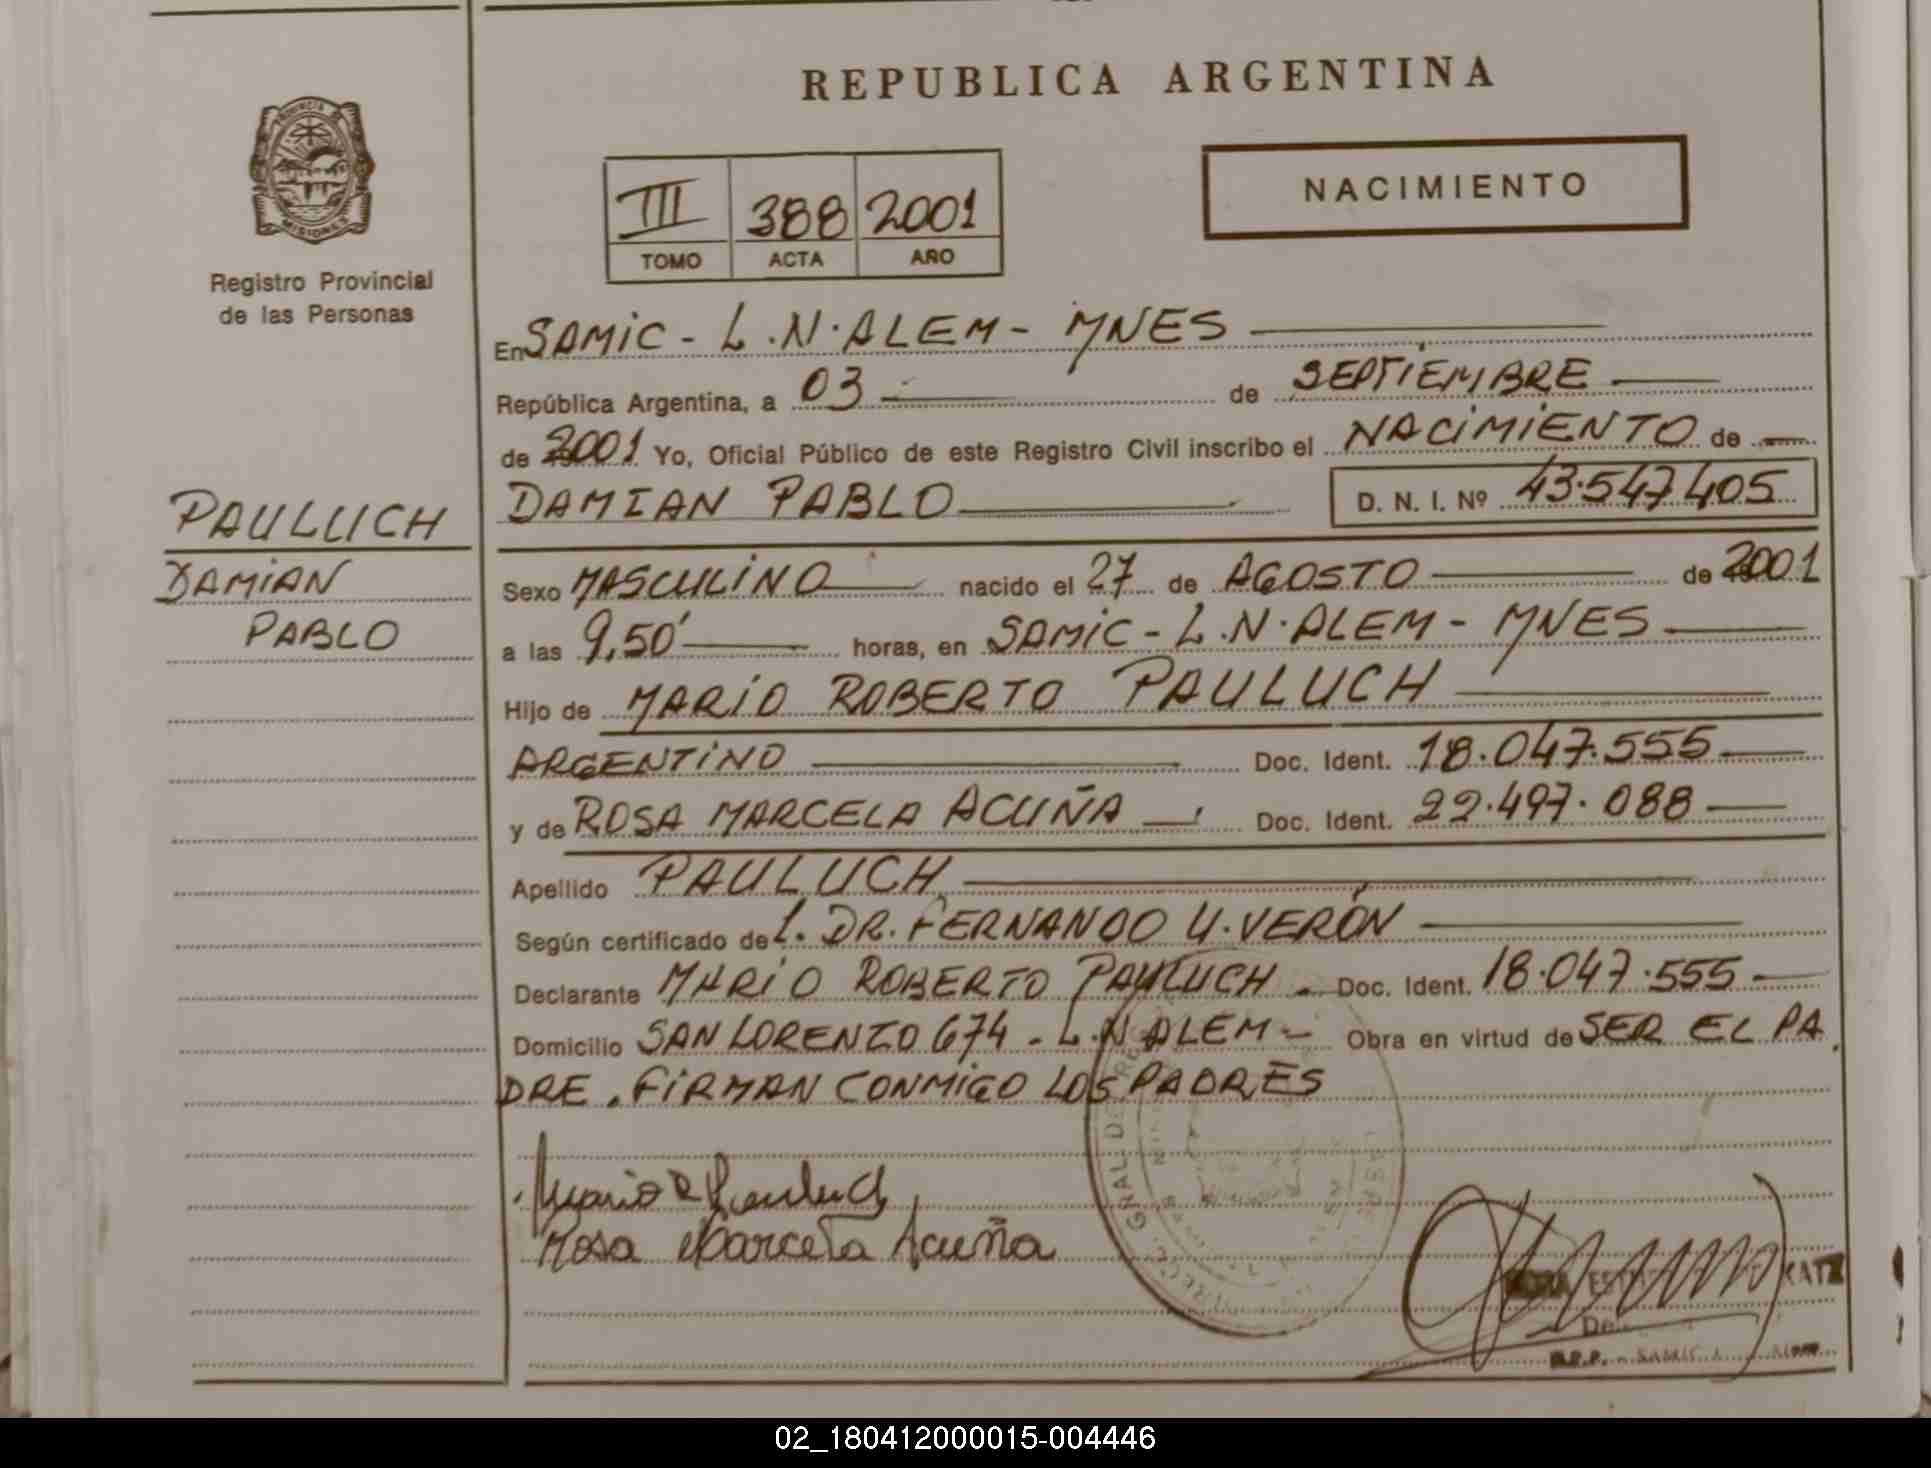 REPUBLICA ARGENTINA
PROVINCIA
MISIONES
Registro Provincial
de las Personas
NACIMIENTO
III 388 2001
TOMO ACTA AÑO
En SAMIC - L.N. ALEM - MNES
República Argentina, a 03 de SEPTIEMBRE
de 2001 Yo, Oficial Público de este Registro Civil inscribo el NACIMIENTO de
DAMIAN PABLO D. N. I. Nº 43.547.405
PAULUCH
DAMIAN
PABLO
Sexo MASCULINO nacido el 27 de AGOSTO de 2001
a las 9,50' horas, en SAMIC - L.N. ALEM - MNES
Hijo de MARIO ROBERTO PAULUCH
ARGENTINO Doc. Ident. 18.047.555
y de ROSA MARCELA ACUÑA Doc. Ident. 22.497.088
Apellido PAULUCH
Según certificado de L. DR. FERNANDO U. VERÓN
Declarante MARIO ROBERTO PAULUCH Doc. Ident. 18.047.555
Domicilio SAN LORENZO 674 - L.N ALEM - Obra en virtud de SER EL PA
DRE. FIRMAN CONMIGO LOS PADRES
Mario R Pauluch
Rosa Marcela Acuña
KATZ
02_180412000015-004446